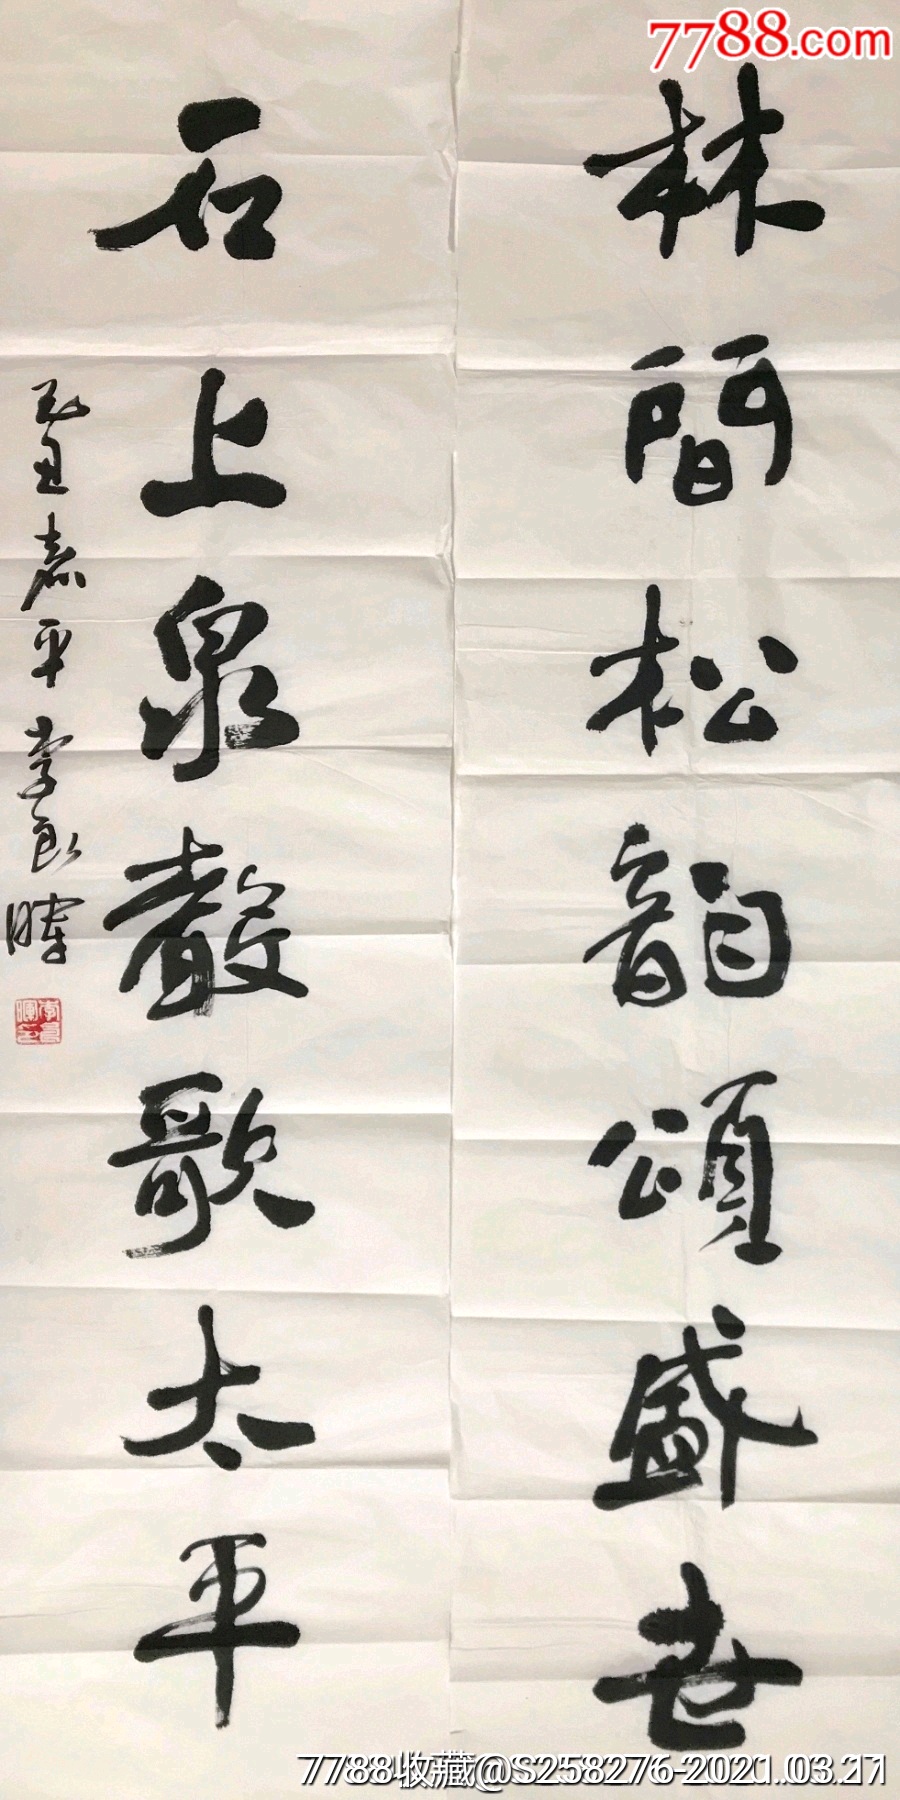 7788.com
林間松韻頌盛世
石上泉聲歌太平
李良暉
7788收藏@S258276-2021.03.27